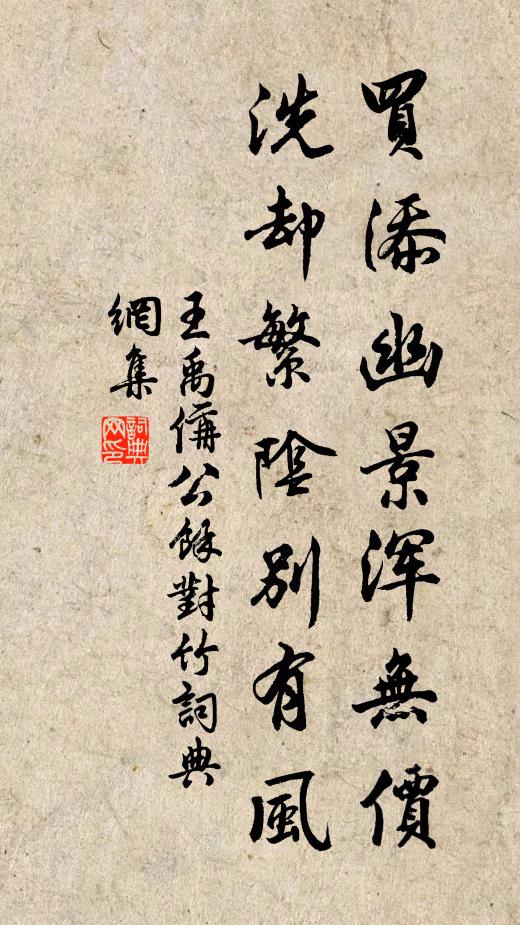 買添幽景渾無價
洗却繁陰別有風
王禹偁公餘對竹詞典
網集
詞典
网印